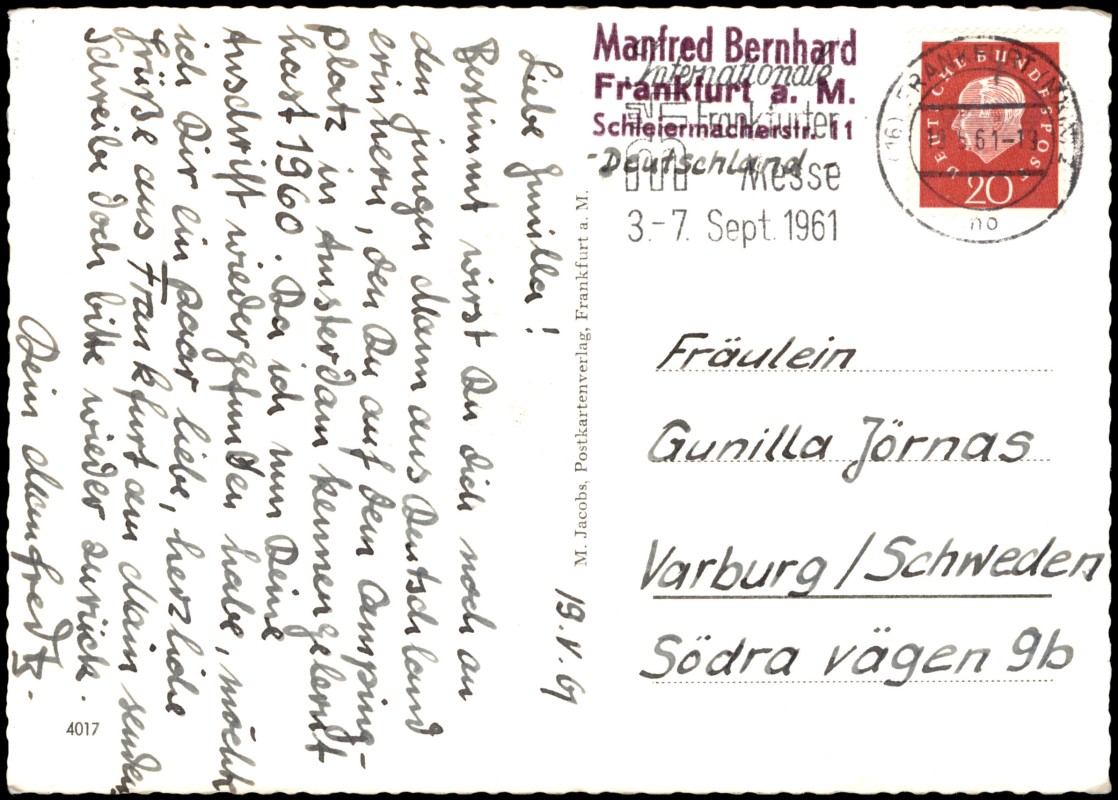 Manfred Bernhard
Frankfurt a. M.
Schleiermacherstr. 11
-Deutschland-
Internationale
Frankfurter
Messe
3.-7. Sept. 1961
(16) FRANKFURT
61-19
no
DEUTSCHE BUNDESPOST
20
19.V.61
Liebe Gunilla!
Bestimmt wirst Du Dich noch an
den jungen Mann aus Deutschland
erinnern, den Du auf dem Camping-
platz in Amsterdam kennengelernt
hast 1960. Da ich nun Deine
Anschrift wiedergefunden habe, möchte
ich Dir ein paar liebe, herzliche
Grüße aus Frankfurt am Main senden
Schreibe doch bitte wieder zurück.
Dein Manfred B.
4017
M. Jacobs, Postkartenverlag, Frankfurt a. M.
Fräulein
Gunilla Jörnas
Varburg/Schweden
Södra vägen 9b